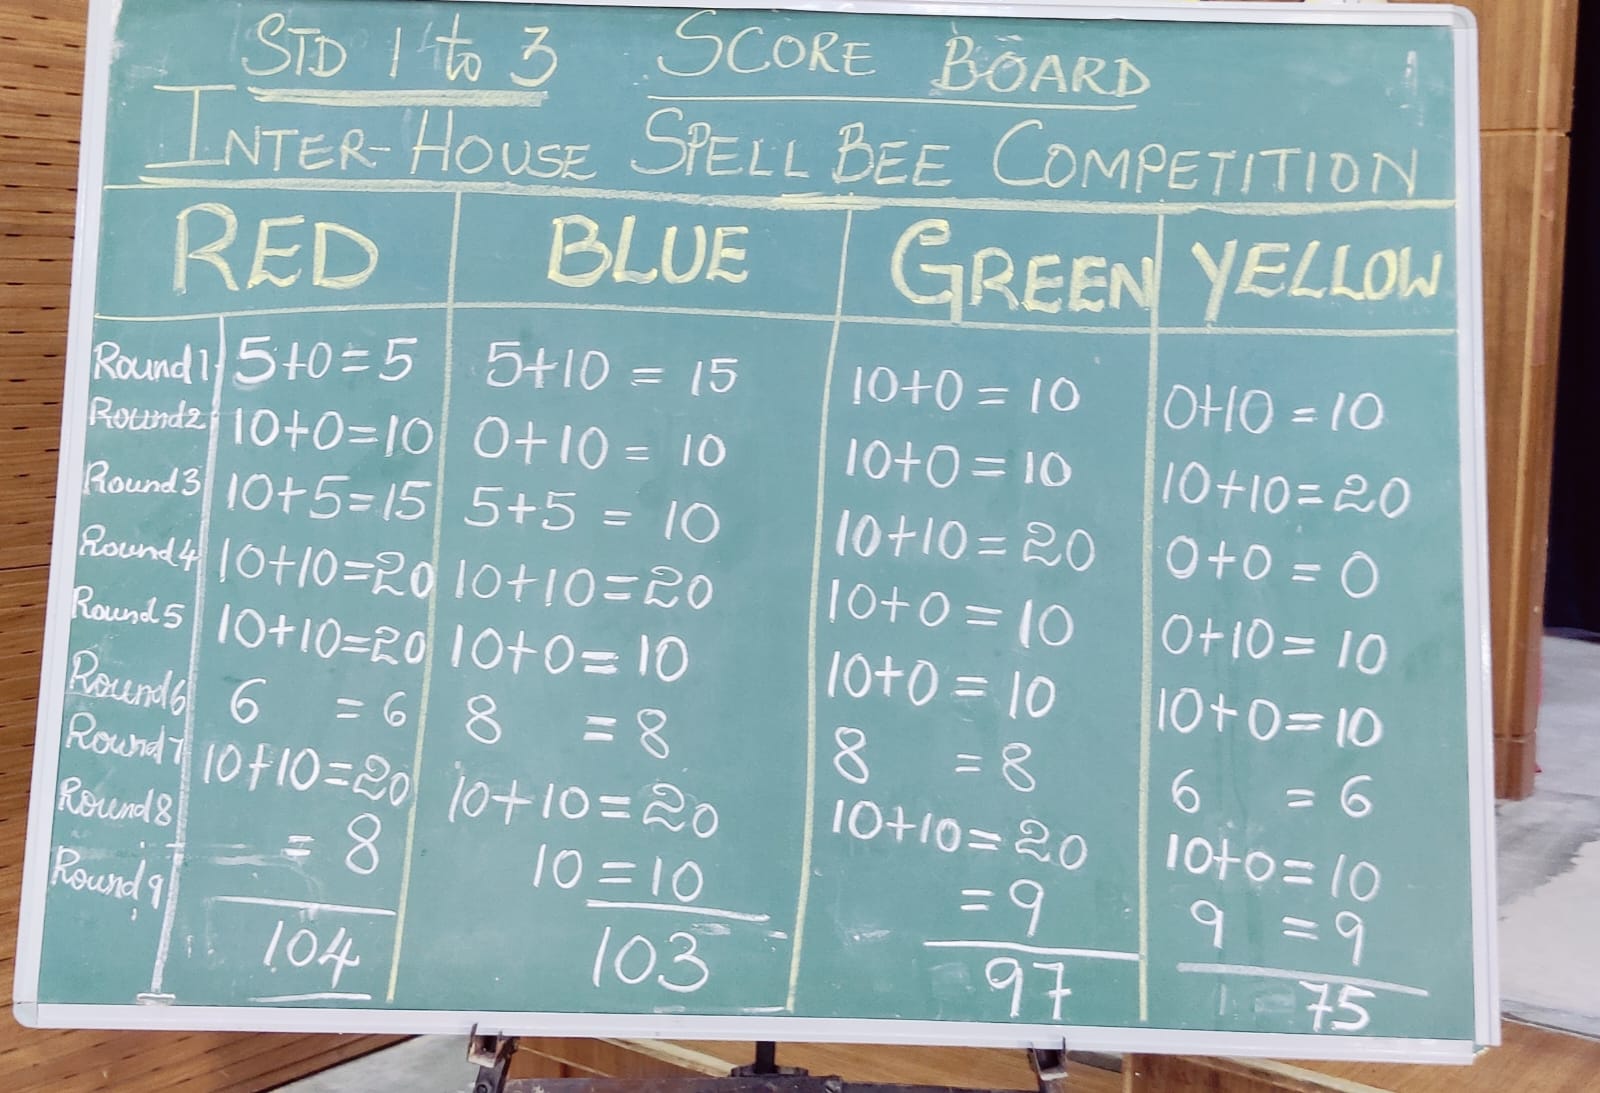 STD 1 to 3 SCORE BOARD
INTER-HOUSE SPELL BEE COMPETITION
RED BLUE GREEN YELLOW
Round 1 5+0=5 5+10=15 10+0=10 0+10=10
Round 2 10+0=10 0+10=10 10+0=10 10+10=20
Round 3 10+5=15 5+5=10 10+10=20 0+0=0
Round 4 10+10=20 10+10=20 10+0=10 0+10=10
Round 5 10+10=20 10+0=10 10+0=10 10+0=10
Round 6 6 =6 8 =8 8 =8 6 =6
Round 7 10+10=20 10+10=20 10+10=20 10+0=10
Round 8 =8 10=10 =9 9 =9
Round 9
104 103 97 75